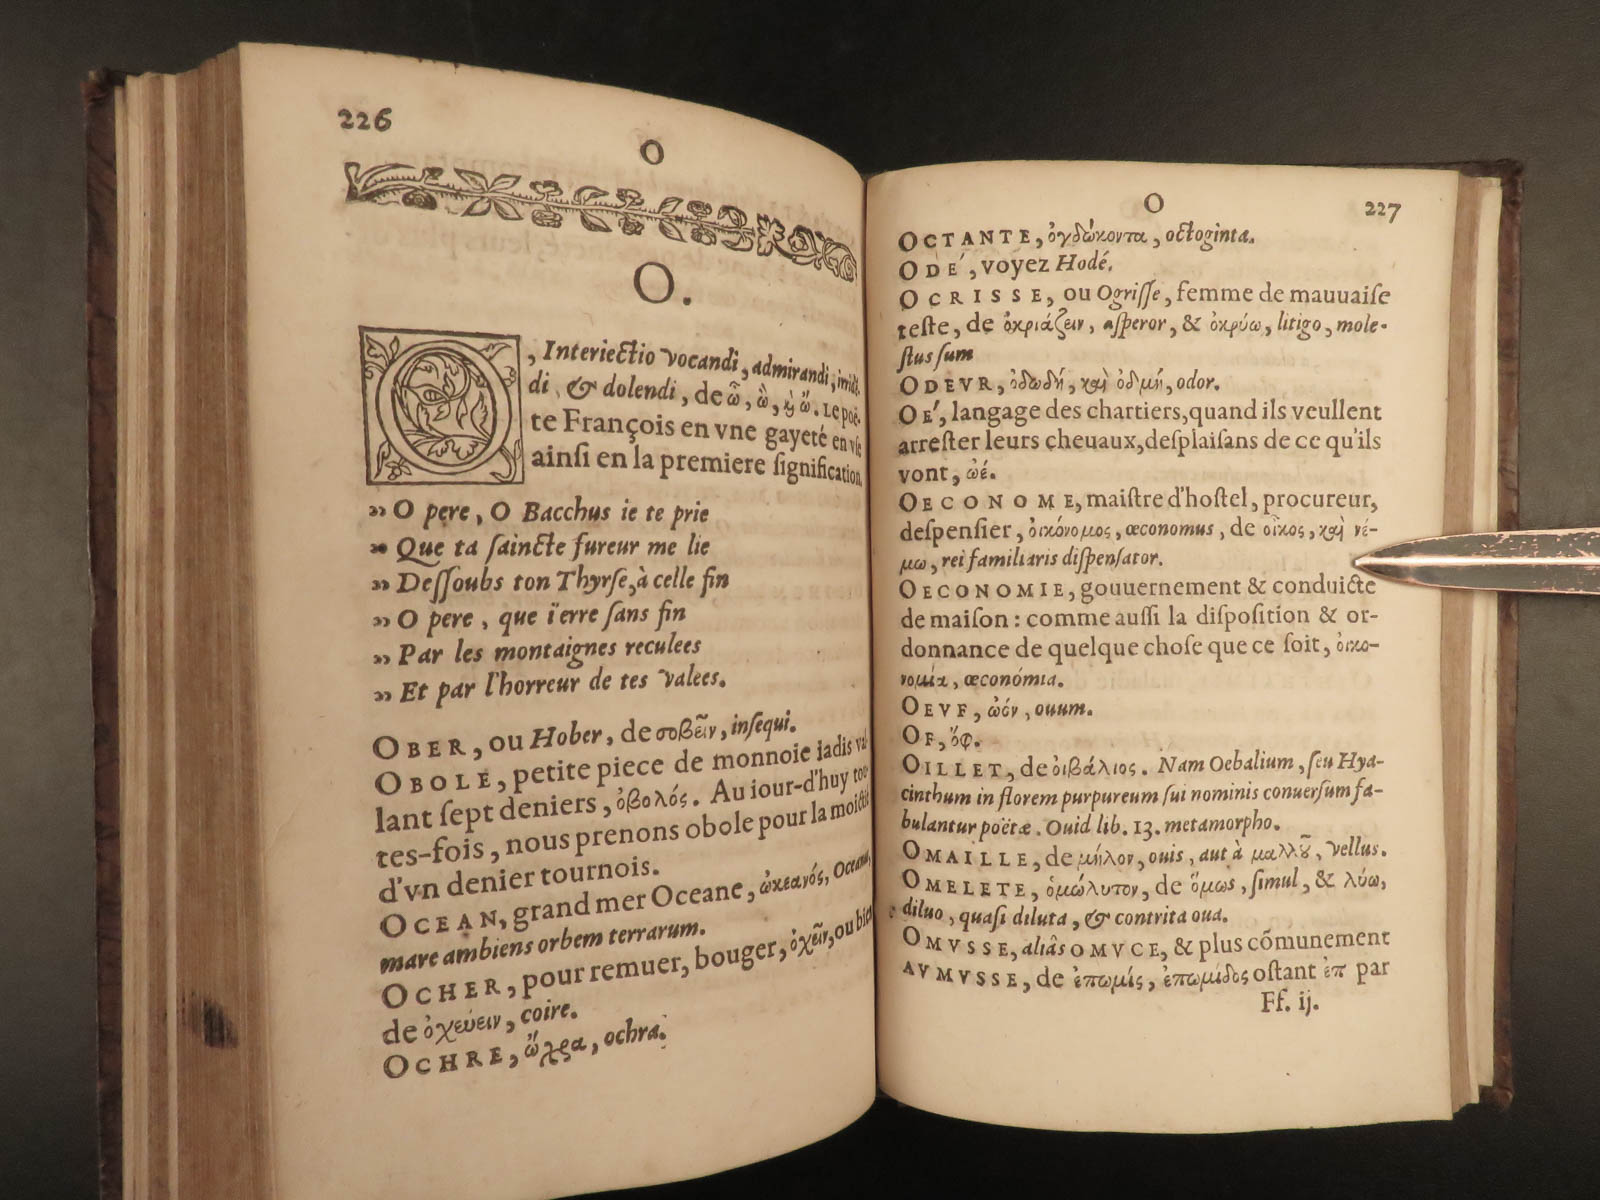 226
O
O.
O, Interiectio vocandi, admirandi, irridẽ-
di, & dolendi, de ὦ, ὢ, κỳ ὤ. Le poë-
te François en vne gayeté en vſe
ainſi en la premiere ſignification.
” O pere, O Bacchus ie te prie
” Que ta ſaincte fureur me lie
” Deſſoubs ton Thyrſe, à celle fin
” O pere, que i'erre ſans fin
” Par les montaignes reculees
” Et par l'horreur de tes valees.
OBER, ou Hober, de σοβεῖν, inſequi.
OBOLE, petite piece de monnoie iadis va-
lant ſept deniers, ὀβολός. Au iour-d'huy tou-
tes-fois, nous prenons obole pour la moictié
d'vn denier tournois.
OCEAN, grand mer Oceane, ὠκεανός, Oceanus,
mare ambiens orbem terrarum.
OCHER, pour remuer, bouger, ὀχεῖν, ou bien
de ὀχεύειν, coire.
OCHRE, ὤχρα, ochra.
O
227
OCTANTE, ὀγδώκοντα, octoginta.
ODÉ, voyez Hodé.
OCRISSE, ou Ogriſſe, femme de mauuaiſe
teſte, de ὀκριάζειν, aſperor, & ὀκρύω, litigo, mole-
ſtus ſum
ODEVR, ὀδωδή, καὶ ὀδμή, odor.
OÉ, langage des chartiers, quand ils veullent
arreſter leurs cheuaux, deſplaiſans de ce qu'ils
vont, ὠέ.
OECONOME, maiſtre d'hoſtel, procureur,
deſpenſier, οἰκόνομος, œconomus, de οἶκος, καὶ νέ-
μω, rei familiaris diſpenſator.
OECONOMIE, gouuernement & conduicte
de maiſon : comme auſſi la diſpoſition & or-
donnance de quelque choſe que ce ſoit, οἰκο-
νομία, œconómia.
OEVF, ὠόν, ouum.
OF, ὄφ.
OILLET, de οιβάλιος. Nam Oebalium, ſeu Hya-
cinthum in florem purpureum ſui nominis conuerſum fa-
bulantur poëtæ. Ouid lib. 13. metamorpho.
OMAILLE, de μήλον, ouis, aut à μαλλοῦ, vellus.
OMELETE, ὁμώλυτον, de ὅμως, ſimul, & λύω,
diluo, quaſi diluta, & contrita oua.
OMVSSE, aliâs OMVCE, & plus cõmunement
AVMVSSE, de ἐπωμίς, ἐπωμίδος oſtant ἐπ par
Ff. ij.